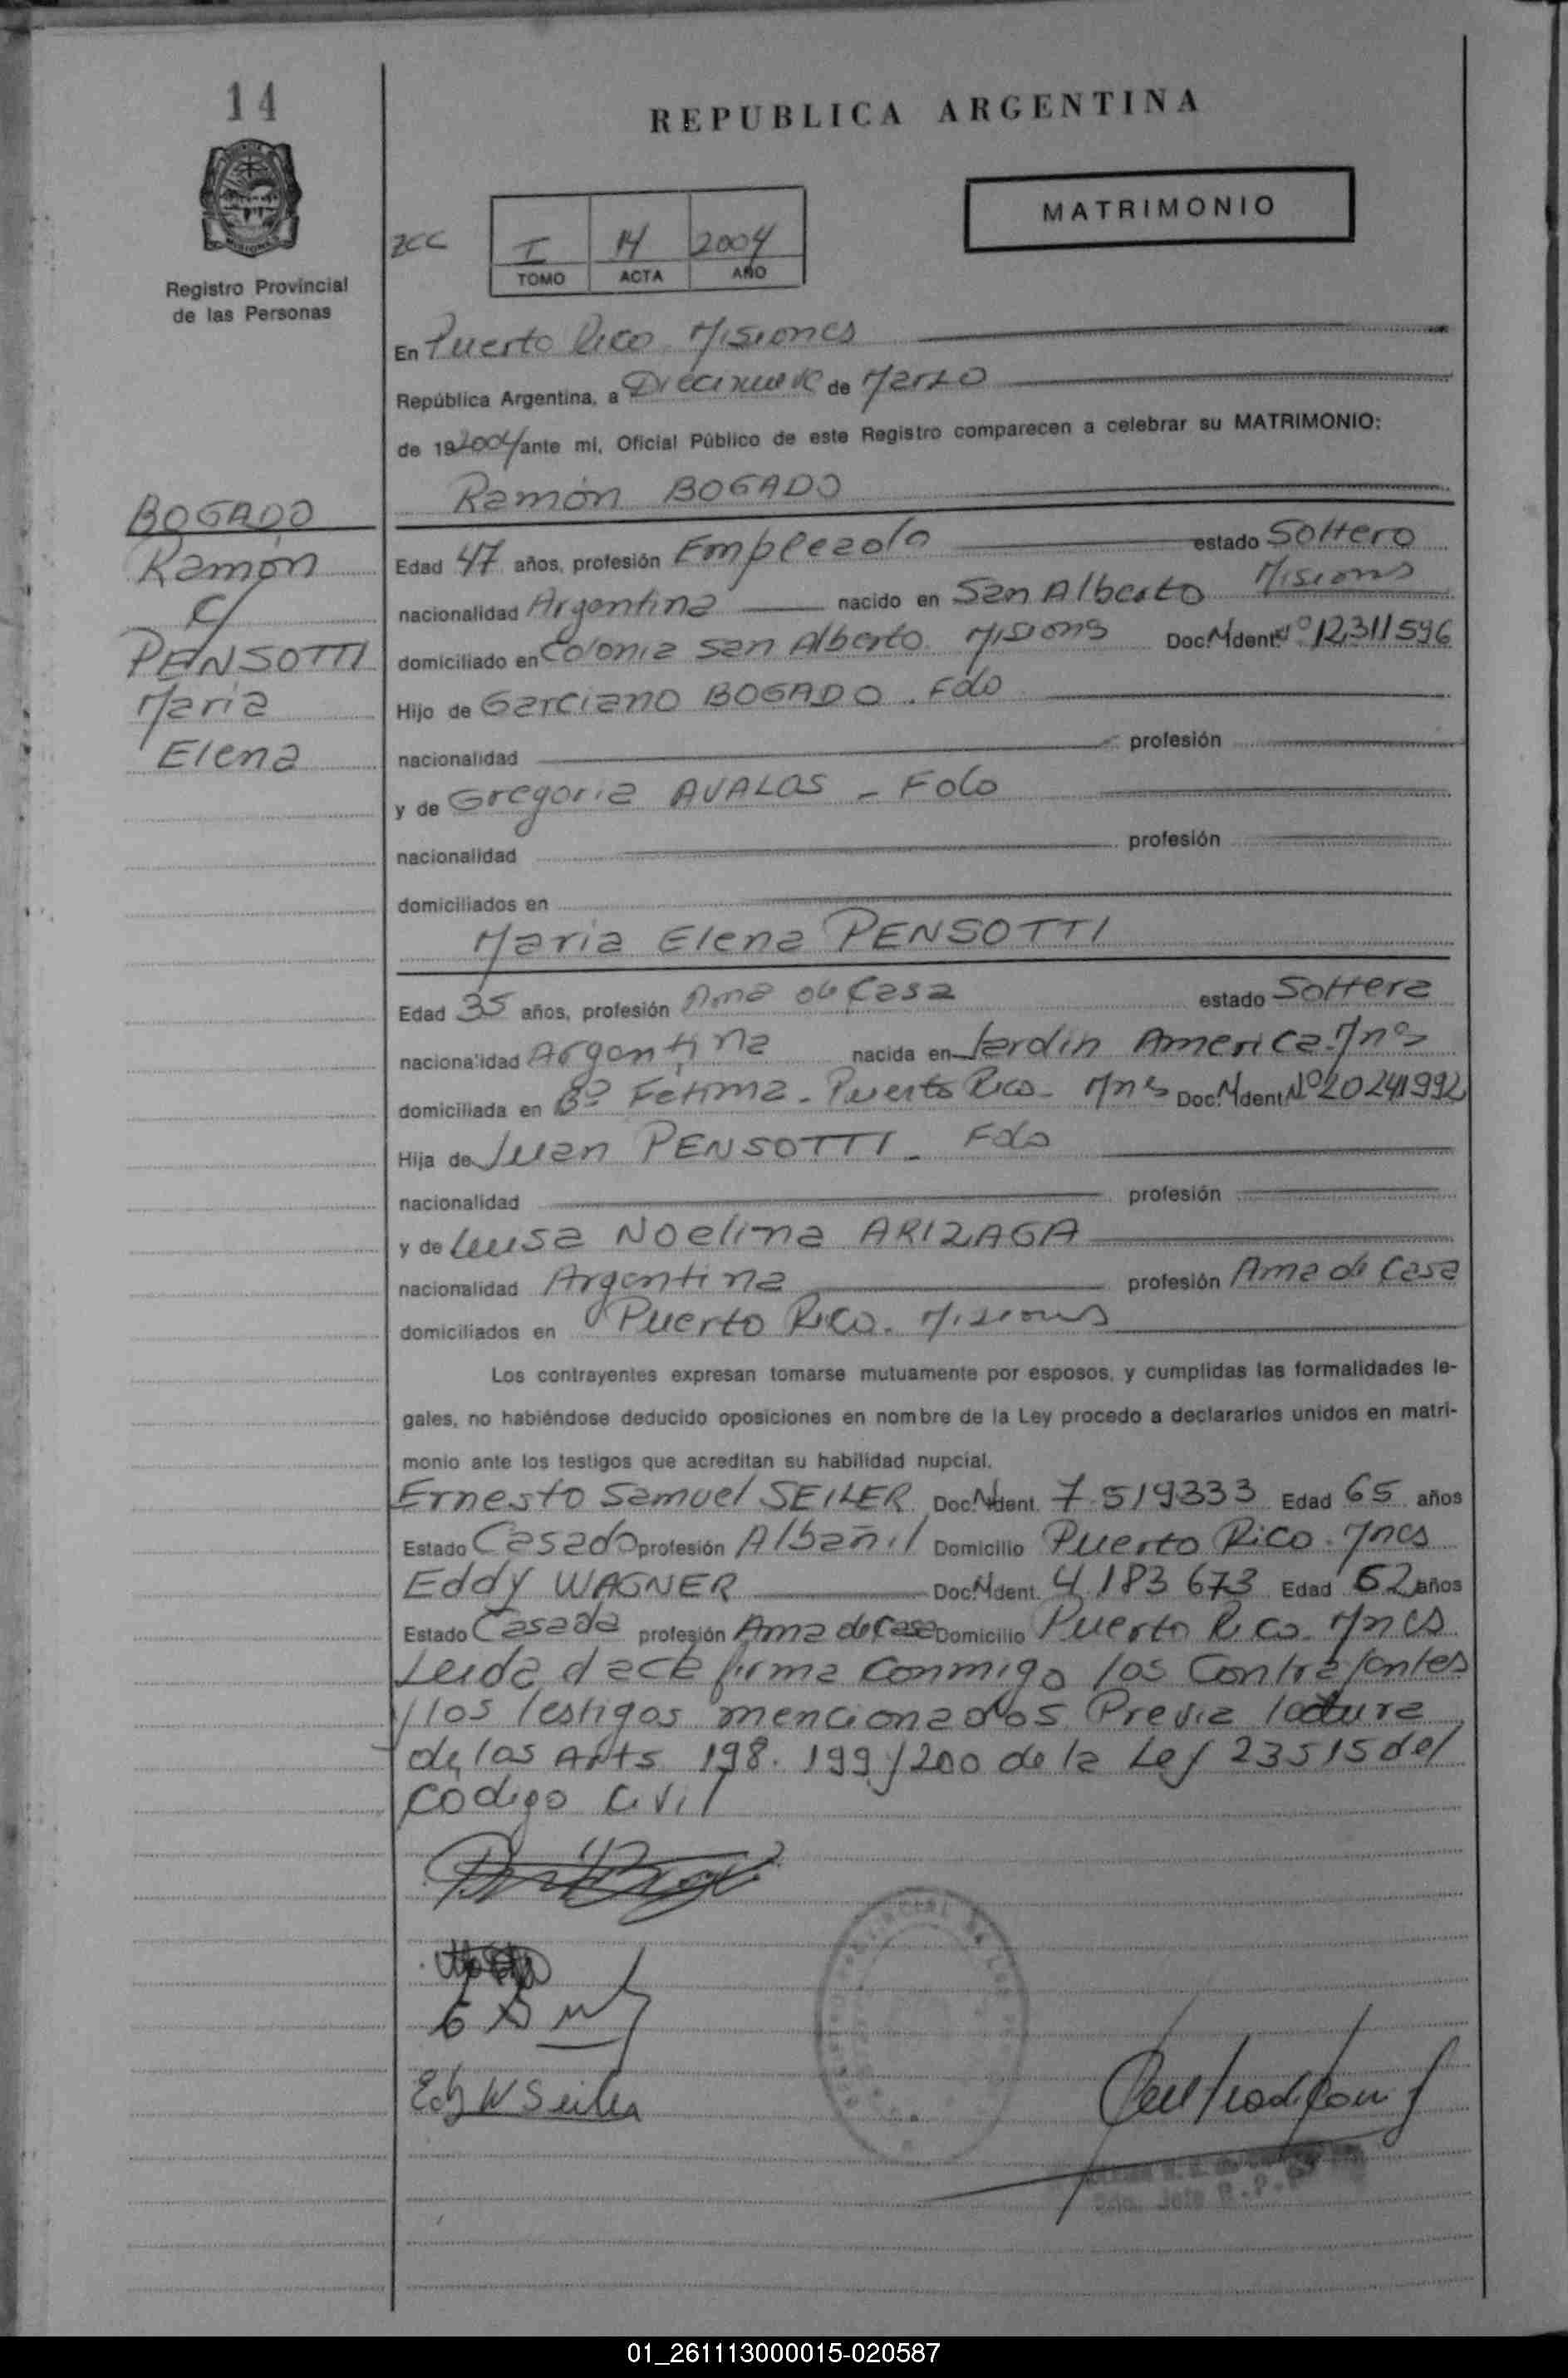 14
REPUBLICA ARGENTINA
MATRIMONIO
Registro Provincial
de las Personas
ZCC
I 14 2004
TOMO ACTA AÑO
En Puerto Rico Misiones
República Argentina, a Diecinueve de Marzo
de 19 2004 ante mí, Oficial Público de este Registro comparecen a celebrar su MATRIMONIO:
Ramón BOGADO
BOGADO
Ramón
c/
PENSOTTI
Maria
Elena
Edad 47 años, profesión Empleado estado Soltero
nacionalidad Argentina nacido en San Alberto Misiones
domiciliado en Colonia San Alberto. Misiones Doc. N Ident. Nº 12311596
Hijo de Garciano BOGADO. Fdo
nacionalidad profesión
y de Gregoria AVALOS - Fdo
nacionalidad profesión
domiciliados en
Maria Elena PENSOTTI
Edad 35 años, profesión Ama de Casa estado Soltera
nacionalidad Argentina nacida en Jardin America. Mnes
domiciliada en Bº Fátima - Puerto Rico - Mnes Doc. N Ident. Nº 20241992
Hija de Juan PENSOTTI - Fdo
nacionalidad profesión
y de Luisa Noelina ARIZAGA
nacionalidad Argentina profesión Ama de Casa
domiciliados en Puerto Rico. Misiones
Los contrayentes expresan tomarse mutuamente por esposos, y cumplidas las formalidades le-
gales, no habiéndose deducido oposiciones en nombre de la Ley procedo a declararlos unidos en matri-
monio ante los testigos que acreditan su habilidad nupcial.
Ernesto Samuel SEILER Doc. N Ident. 7.519333 Edad 65 años
Estado Casado profesión Albañil Domicilio Puerto Rico. Mnes
Eddy WAGNER Doc. N Ident. 4.183673 Edad 62 años
Estado Casada profesión Ama de Casa Domicilio Puerto Rico. Mnes
Leida el acta firma conmigo los Contrayentes
y los testigos mencionados Previa lectura
de los Arts 198. 199 y 200 de la Ley 23515 del
codigo Civil
Edy W Seiler
Jefe R.P.P.
01_261113000015-020587